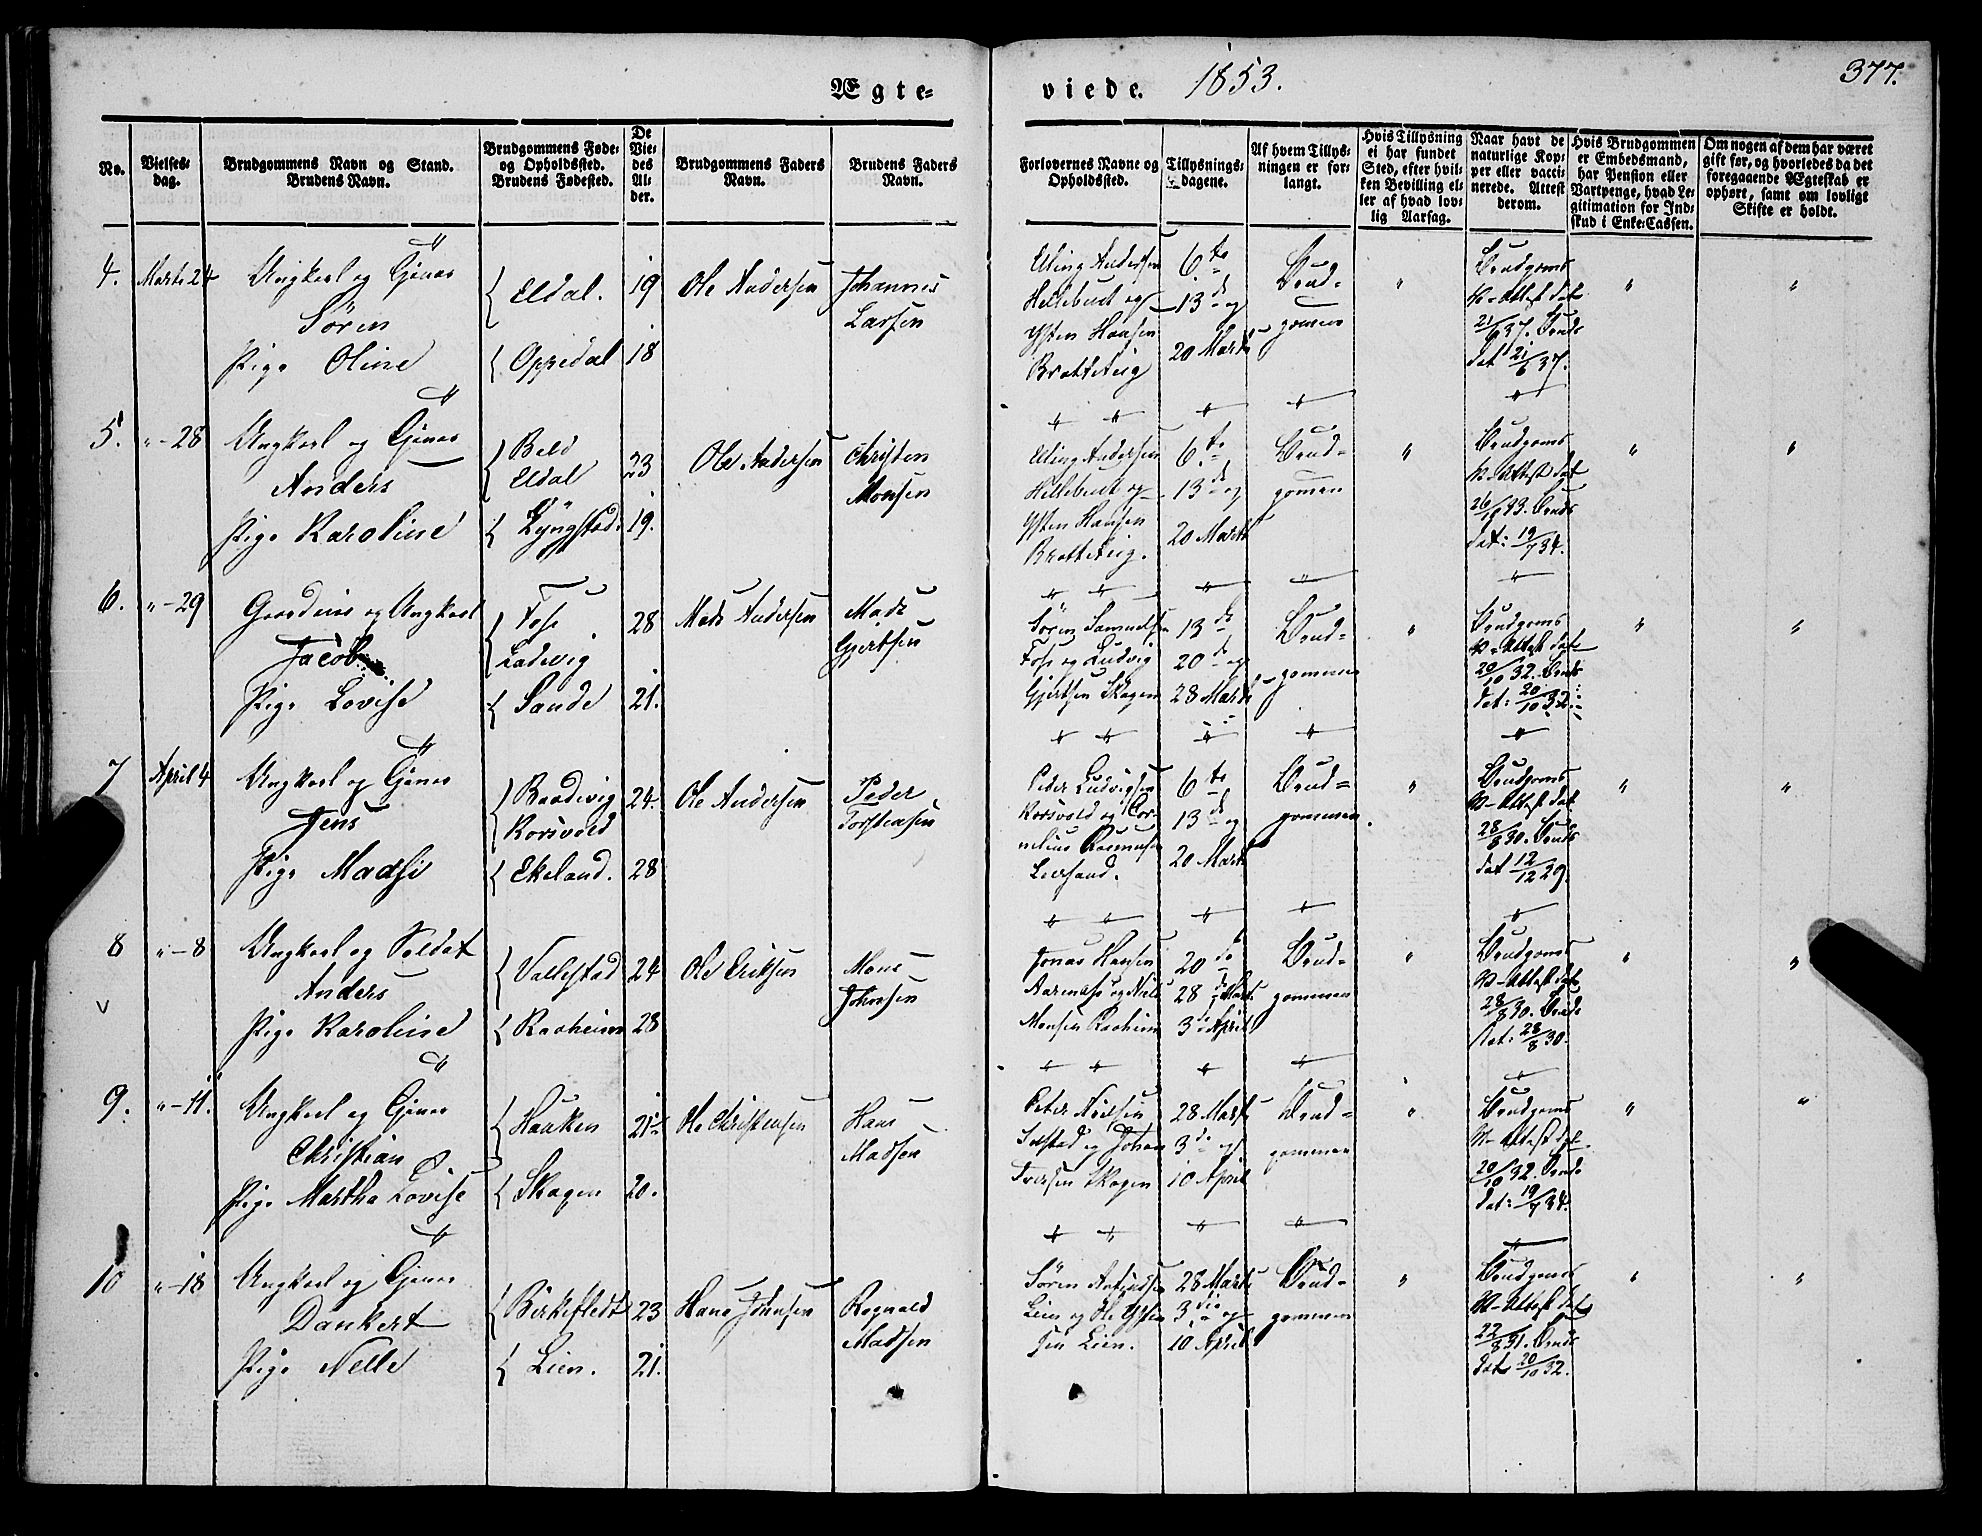 Ægte-
viede. 1853.
377.
No.
Vielses-
dag.
Brudgommens Navn og Stand.
Brudens Navn.
Brudgommens Føde-
og Opholdssted.
Brudens Fødested.
De
Vie-
des
Al-
der.
Brudgommens Faders
Navn.
Brudens Faders
Navn.
Forlovernes Navne og
Opholdssted.
Tillysnings-
dagene.
Af hvem Tillys-
ningen er for-
langt.
Hvis Tillysning
ei har fundet
Sted, efter hvil-
ken Bevilling el-
ler af hvad lov-
lig Aarsag.
Naar havt de
naturlige Kop-
per eller vacci-
nerede. Attest
derom.
Hvis Brudgommen
er Embedsmand,
har Pension eller
Vartpenge, hvad Le-
gitimation for Ind-
skud i Enke-Cassen.
Om nogen af dem har været
gift før, og hvorledes da det
foregaaende Ægteskab er
ophørt, samt om lovligt
Skifte er holdt.
4. Marts 24 Ungkarl og
Sören
Pige Oline
Eldal. 19
Oppedal 18
Ole Andersen
Johannes
Larsen
Elling Andersen
Hellebust og
Ysten Hansen
Brattteig
6te
13de og
20 Marts
Brud-
gommen
"
Brudgoms
V-Attest dat
21/6 37. Bruds
dat 21/6 37.
"
"
5. "-28 Ungkarl og
Anders
Pige Karoline
Eldal 23
Lyngstad 19.
Ole Andersen
Christen
Monsen
Elling Andersen
Hellebust og
Ysten Hansen
Brattteig.
6te
13de og
20 Marts
Brud-
gommen
"
Brudgoms
V-Attest dat
Bruds
dat: 19/7 34.
"
"
6. "-29 og Ungkarl
Jacob
Pige Lovise
28
Ladevig
Sande 21.
Mads Andersen
Mads
Gjertsen
Sören Samuelsen
og Ludvig
Gjertsen Skagen
13de
20de og
28 Marts
Brud-
gommen
"
Brudgoms
V-Attest dat
20/10 32. Bruds
dat: 20/10 32.
"
"
7 April 4 Ungkarl og
Jens
Pige Madsi
24.
Korsvold
Ekeland. 28
Ole Andersen
Peder
Torstensen
Peder Ludvigsen
Korsvold og Cor-
nelius Rasmusen
6te
13de og
20 Marts
Brud-
gommen.
"
Brudgoms
V-Attest dat
28/8 30. Bruds
dat 12/12 29.
"
"
8 "-8 Ungkarl og Soldat
Anders
Pige Karoline
Vallestad 24
Raaheim 28
Ole Eriksen
Mons
Johnsen
Jonas Hansen
og Nils
Monsen Raaheim
20de
28de Marts
3die April
Brud-
gommen
"
Brudgoms
V-Attest dat
28/8 30. Bruds
dat: 28/8 30.
"
"
9. "-11. Ungkarl og
Christian
Pige Martha Lovise
Hauken
Skagen 20.
Ole Christensen
Hans
Madsen
Peter Nielsen
og Johan
Iversen Skagen
28 Marts
3die og
10 April
Brud-
gommen
"
Brudgoms
V-Attest dat
20/10 32. Bruds
dat: 19/7 34.
"
"
10 "-18 Ungkarl og
Dankert
Pige Nelle
Birkestedt 23
Lien. 21.
Hans Johnsen
Ragnald
Madsen
Sören
Lien og Ole Ysten-
sen Lien.
28 Marts
3die og
10 April
Brud-
gommen
"
Brudgoms
V-Attest dat
22/8 31. Bruds
dat 20/10 32.
"
"